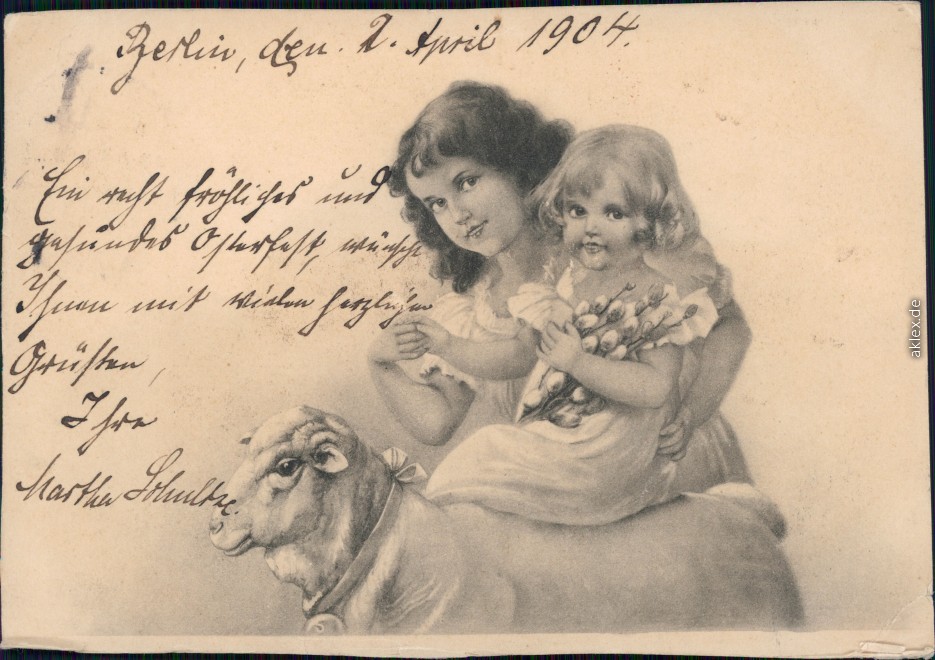 Berlin, den. 2. April 1904.
Ein recht fröhliches und
gesundes Osterfest, wünscht
Ihnen mit vielen herzlichen
Grüßen,
Ihre
Martha Schultze.
aklex.de